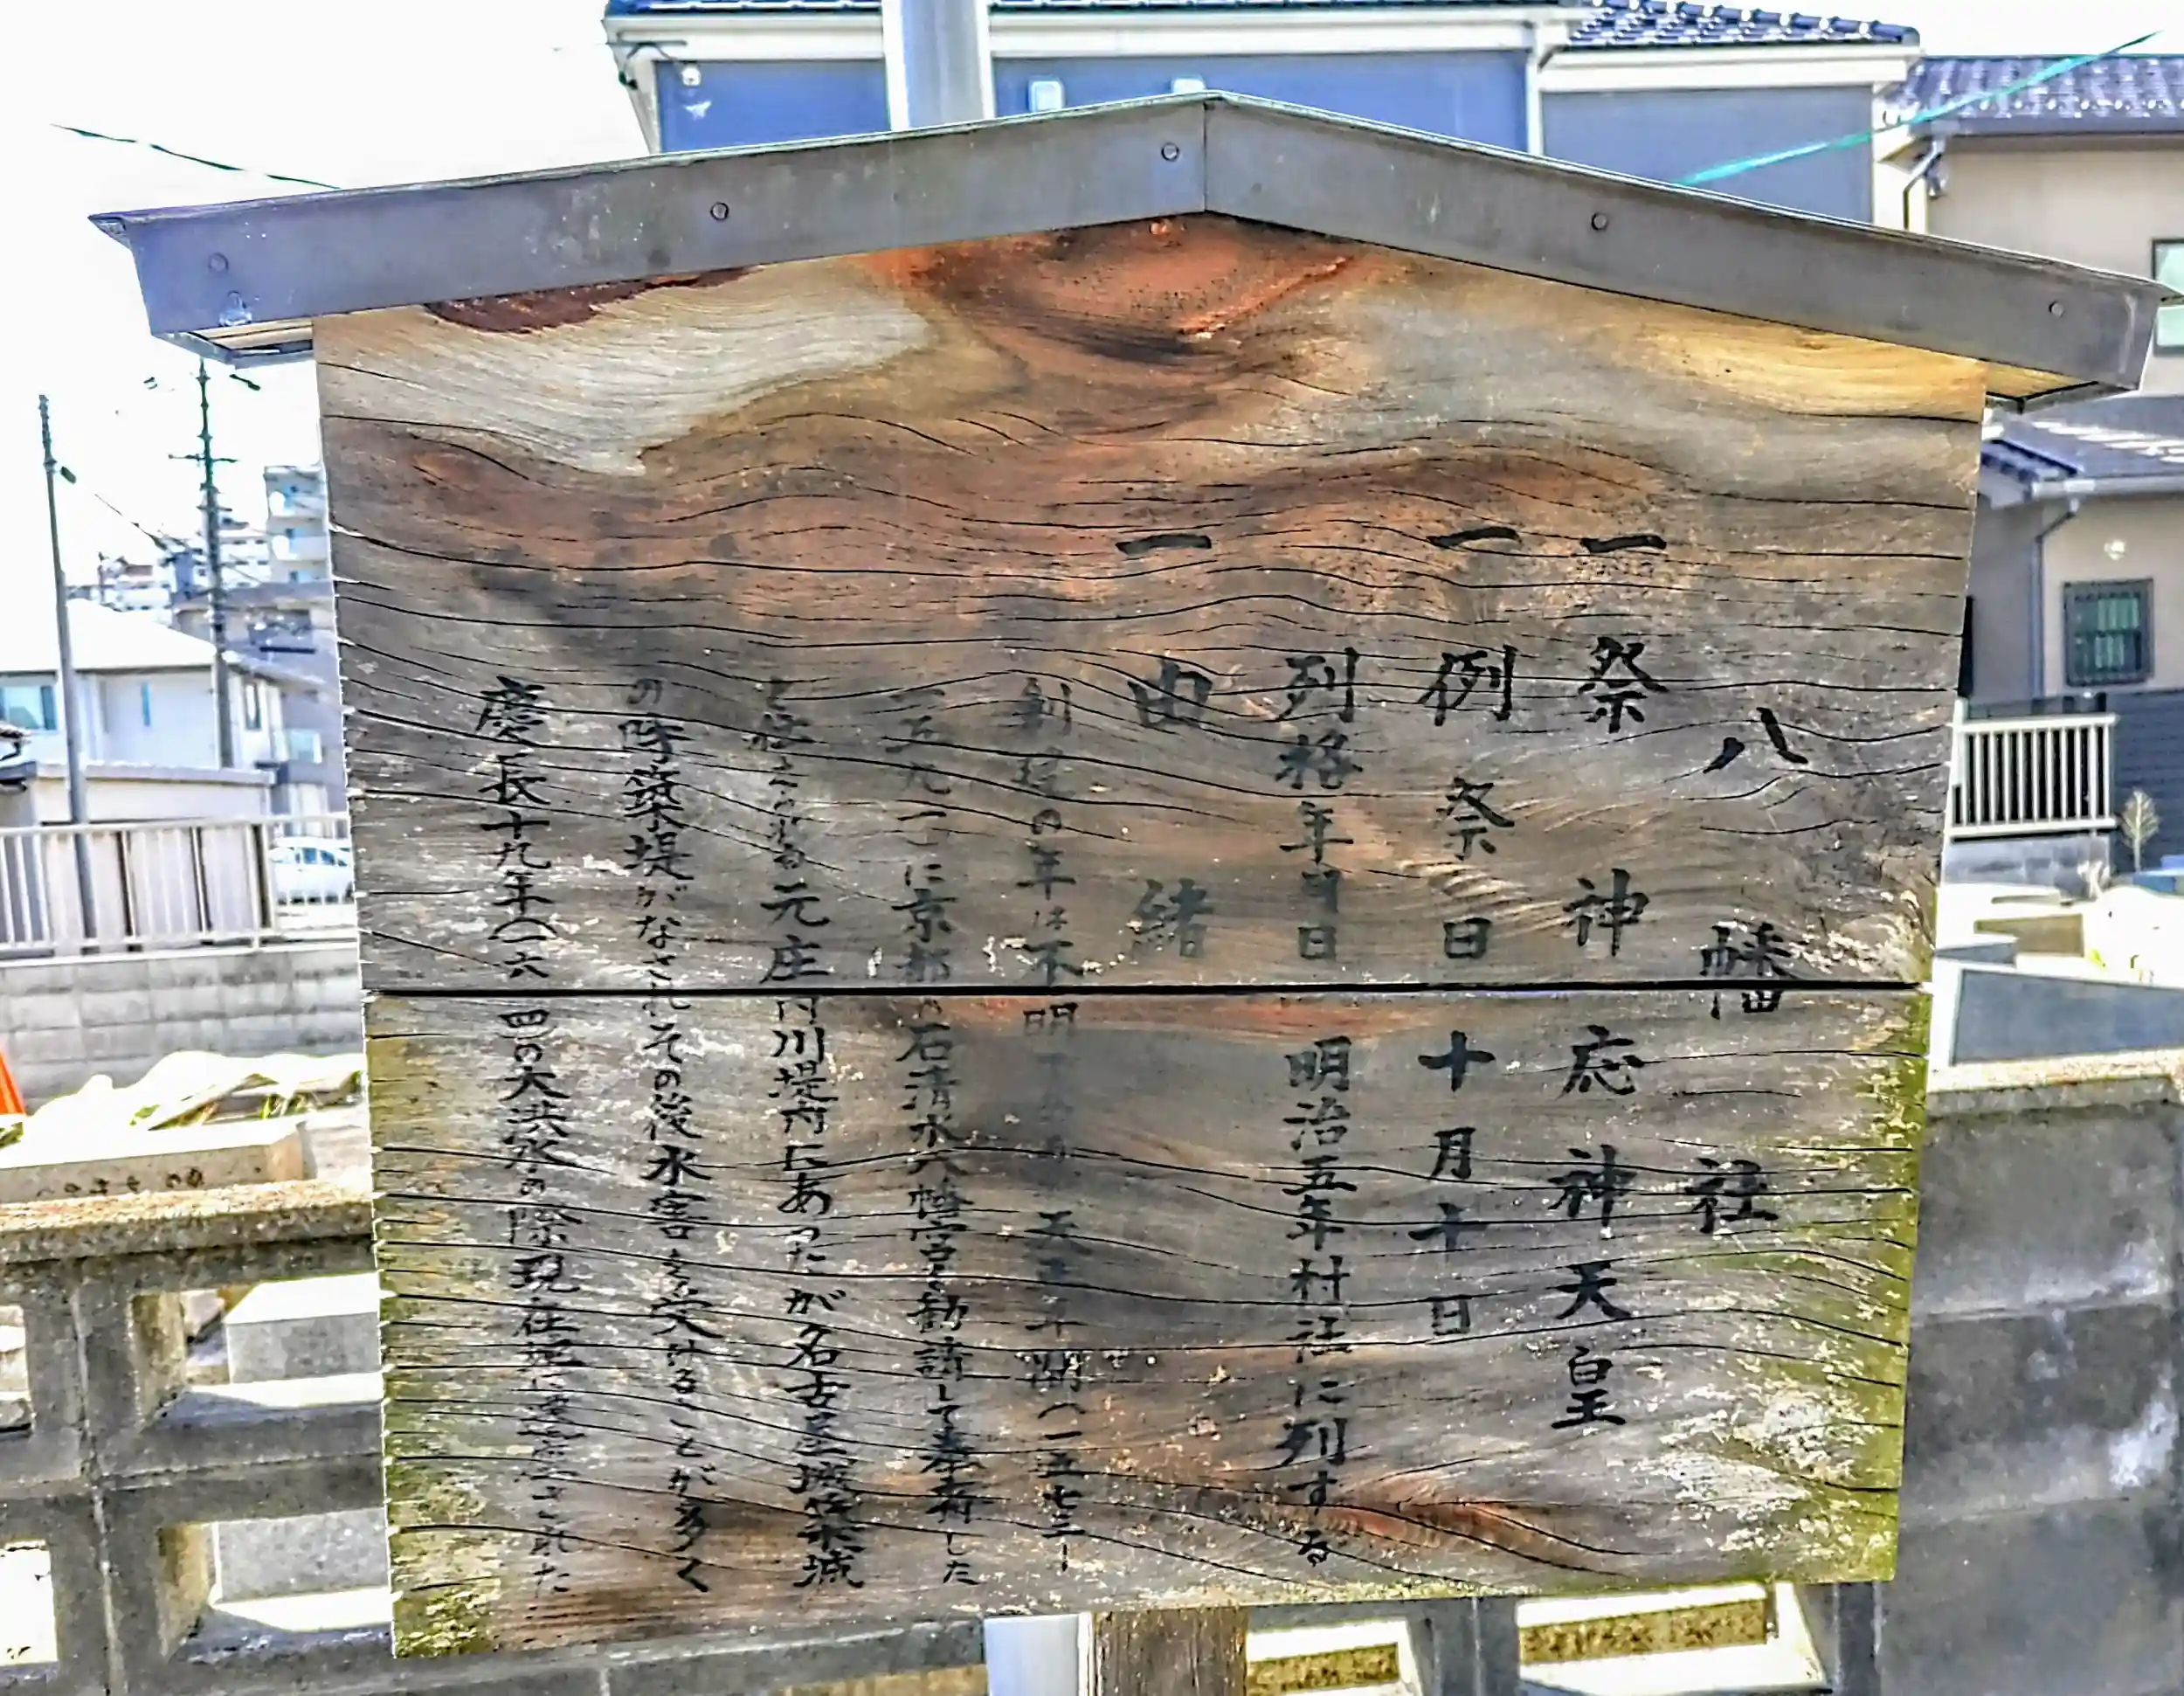 八幡社
一 祭神 応神天皇
一 例祭日 十月十日
列格年月日 明治五年村社に列する
一 由緒
創建の年は不明 天正年間(一五七三ー
一五九一)に京都の石清水八幡宮を勧請して奉斎した
と伝えられる元庄内川堤内にあったが名古屋城築城
の時築堤がなされその後水害を受けることが多く
慶長十九年(一六一四)の大洪水の際現在地に遷された